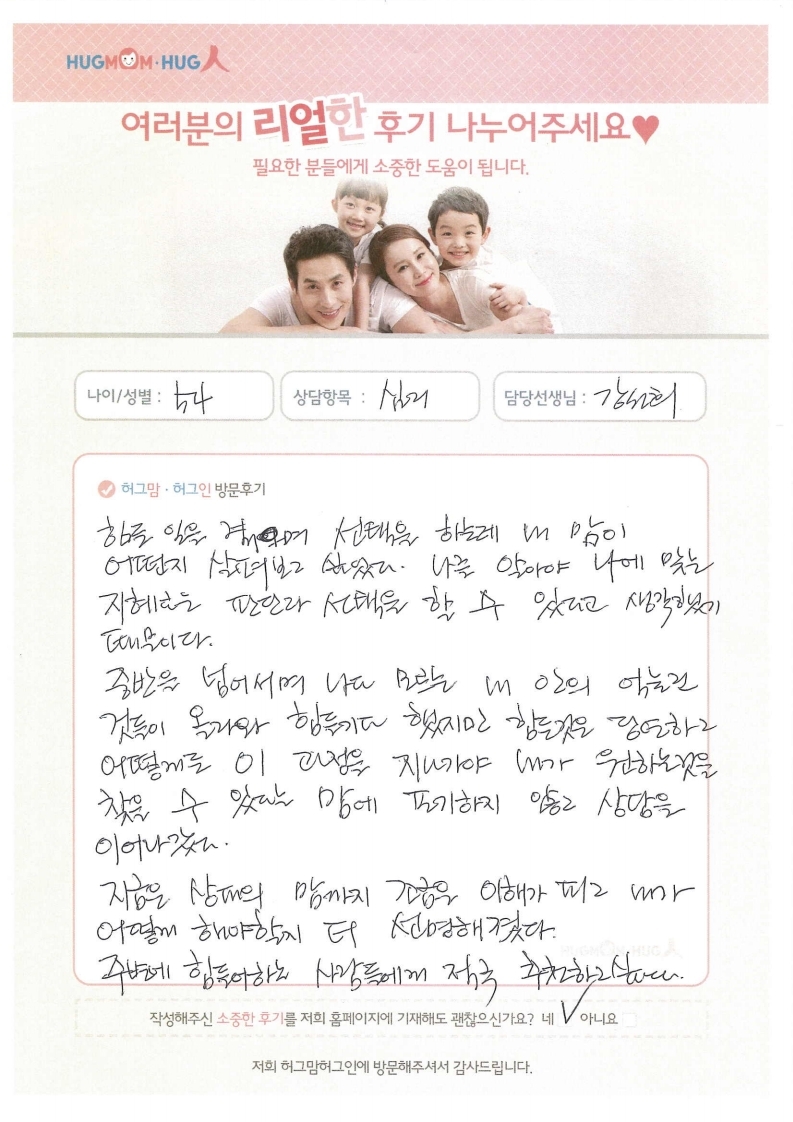 HUGMOM·HUG人
여러분의 리얼한 후기 나누어주세요♥
필요한 분들에게 소중한 도움이 됩니다.
나이/성별 : 상담항목 : 심리 담당선생님 :
허그맘·허그인 방문후기
힘든 일을 겪으며 선택을 하는데 내 맘이
어떤지 살펴보고 싶었다. 나를 알아야 나에 맞는
지혜로운 판단과 선택을 할 수 있다고 생각했기
때문이다.
중반을 넘어서며 나도 모르는 내 안의 억눌린
것들이 올라와 힘들기도 했지만 힘든것은 당연하고
어떻게든 이 과정을 지나가야 내가 원하는것을
찾을 수 있다는 맘에 포기하지 않고 상담을
이어나갔다.
지금은 상대의 맘까지 조금은 이해가 되고 내가
어떻게 해야할지 더 선명해졌다.
주변에 힘들어하는 사람들에게 적극 추천하고싶다.
작성해주신 소중한 후기를 저희 홈페이지에 기재해도 괜찮으신가요? 네 ✓ 아니요
저희 허그맘허그인에 방문해주셔서 감사드립니다.